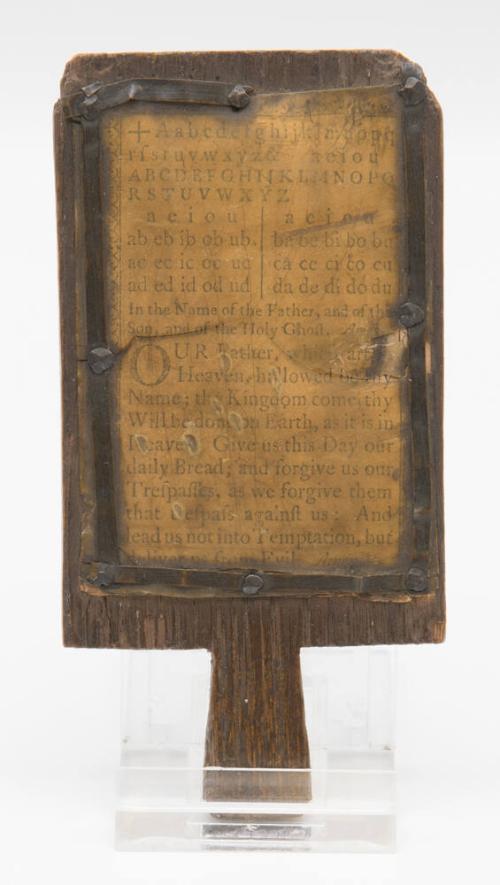 +Aabcdefghijklmnopq
rſstuvwxyz& aeiou
ABCDEFGHIJKLMNOPQ
RSTUVWXYZ
a e i o u | a e i o u
ab eb ib ob ub | ba be bi bo bu
ac ec ic oc uc | ca ce ci co cu
ad ed id od ud | da de di do du
In the Name of the Father, and of the
Son, and of the Holy Ghoſt. Amen.
OUR Father, which art
Heaven, hallowed be thy
Name; thy Kingdom come, thy
Will be done on Earth, as it is in
Heaven. Give us this Day our
daily Bread; and forgive us our
Treſpaſſes, as we forgive them
that treſpaſs againſt us: And
lead us not into Temptation, but
deliver us from Evil. Amen.